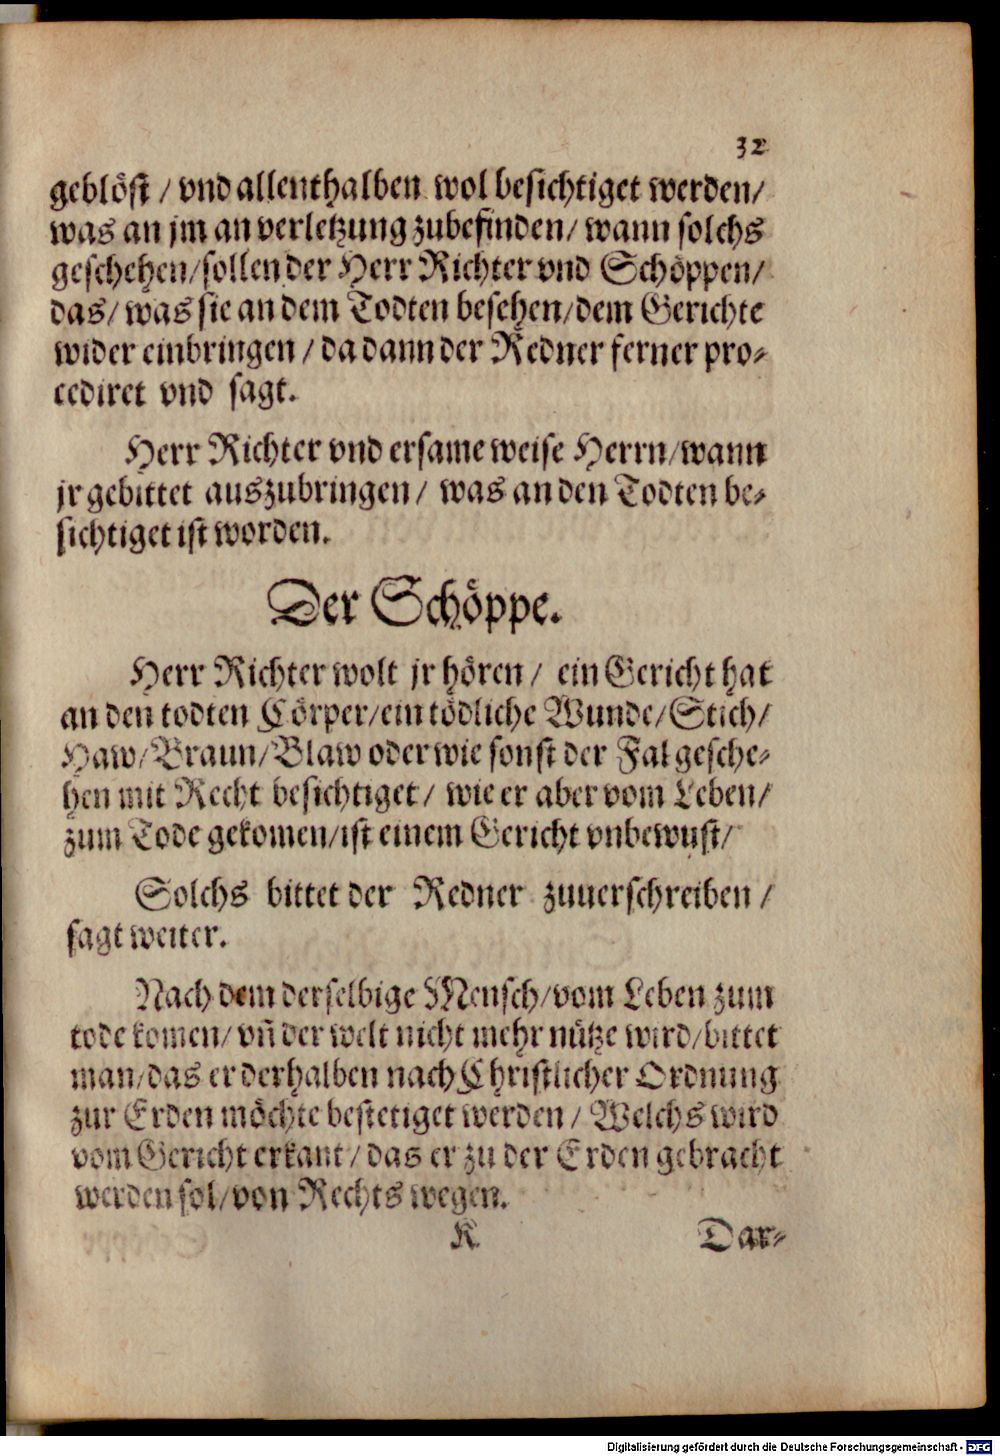 32
geblöst / vnd allenthalben wol besichtiget werden/
was an jm an verletzung zubefinden/ wann solchs
geschehen/sollen der Herr Richter vnd Schöppen/
das/ was sie an dem Todten besehen/dem Gerichte
wider einbringen / da dann der Redner ferner pro-
cediret vnd sagt.
Herr Richter vnd ersame weise Herrn/wann
jr gebittet auszubringen/ was an den Todten be-
sichtiget ist worden.
Der Schöppe.
Herr Richter wolt jr hören/ ein Gericht hat
an den todten Cörper/ein tödliche Wunde/Stich/
Haw/Braun/Blaw oder wie sonst der Fal gesche-
hen mit Recht besichtiget/ wie er aber vom Leben/
zum Tode gekomen/ist einem Gericht vnbewust/
Solchs bittet der Redner zuuerschreiben /
sagt weiter.
Nach dem derselbige Mensch/vom Leben zum
tode komen/ vn̄ der welt nicht mehr nütze wird/bittet
man/das er derhalben nach Christlicher Ordnung
zur Erden möchte bestetiget werden/ Welchs wird
vom Gericht erkant/das er zu der Erden gebracht
werden sol/von Rechts wegen.
K Dar-
Digitalisierung gefördert durch die Deutsche Forschungsgemeinschaft - DFG